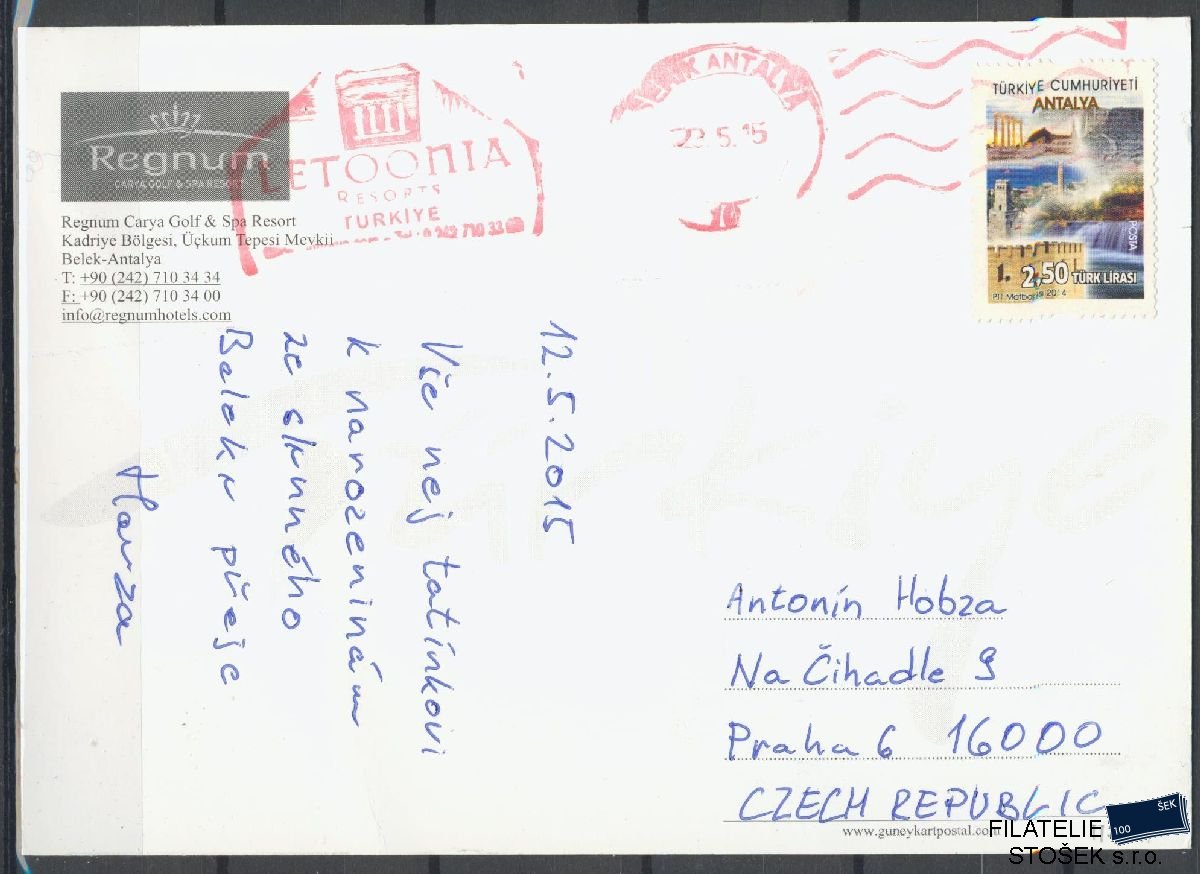 Regnum
CARYA GOLF & SPA RESORT
Regnum Carya Golf & Spa Resort
Kadriye Bölgesi, Üçkum Tepesi Mevkii
Belek-Antalya
T: +90 (242) 710 34 34
F: +90 (242) 710 34 00
info@regnumhotels.com
LETOONIA
RESORTS
TÜRKİYE
0 242 710 33
ANTALYA
22.5.15
TÜRKİYE CUMHURİYETİ
ANTALYA
POSTA
1. 2,50 TÜRK LİRASI
PTT Matbaası 2014
12.5.2015
Vše nej tatínkovi
k narozeninám
ze slunného
Beleku přeje
Honza
Türkiye
Antonín Hobza
Na Čihadle 9
Praha 6 16000
CZECH REPUBLIC
www.guneykartpostal.com
FILATELIE
STOŠEK s.r.o.
100 ŠEK